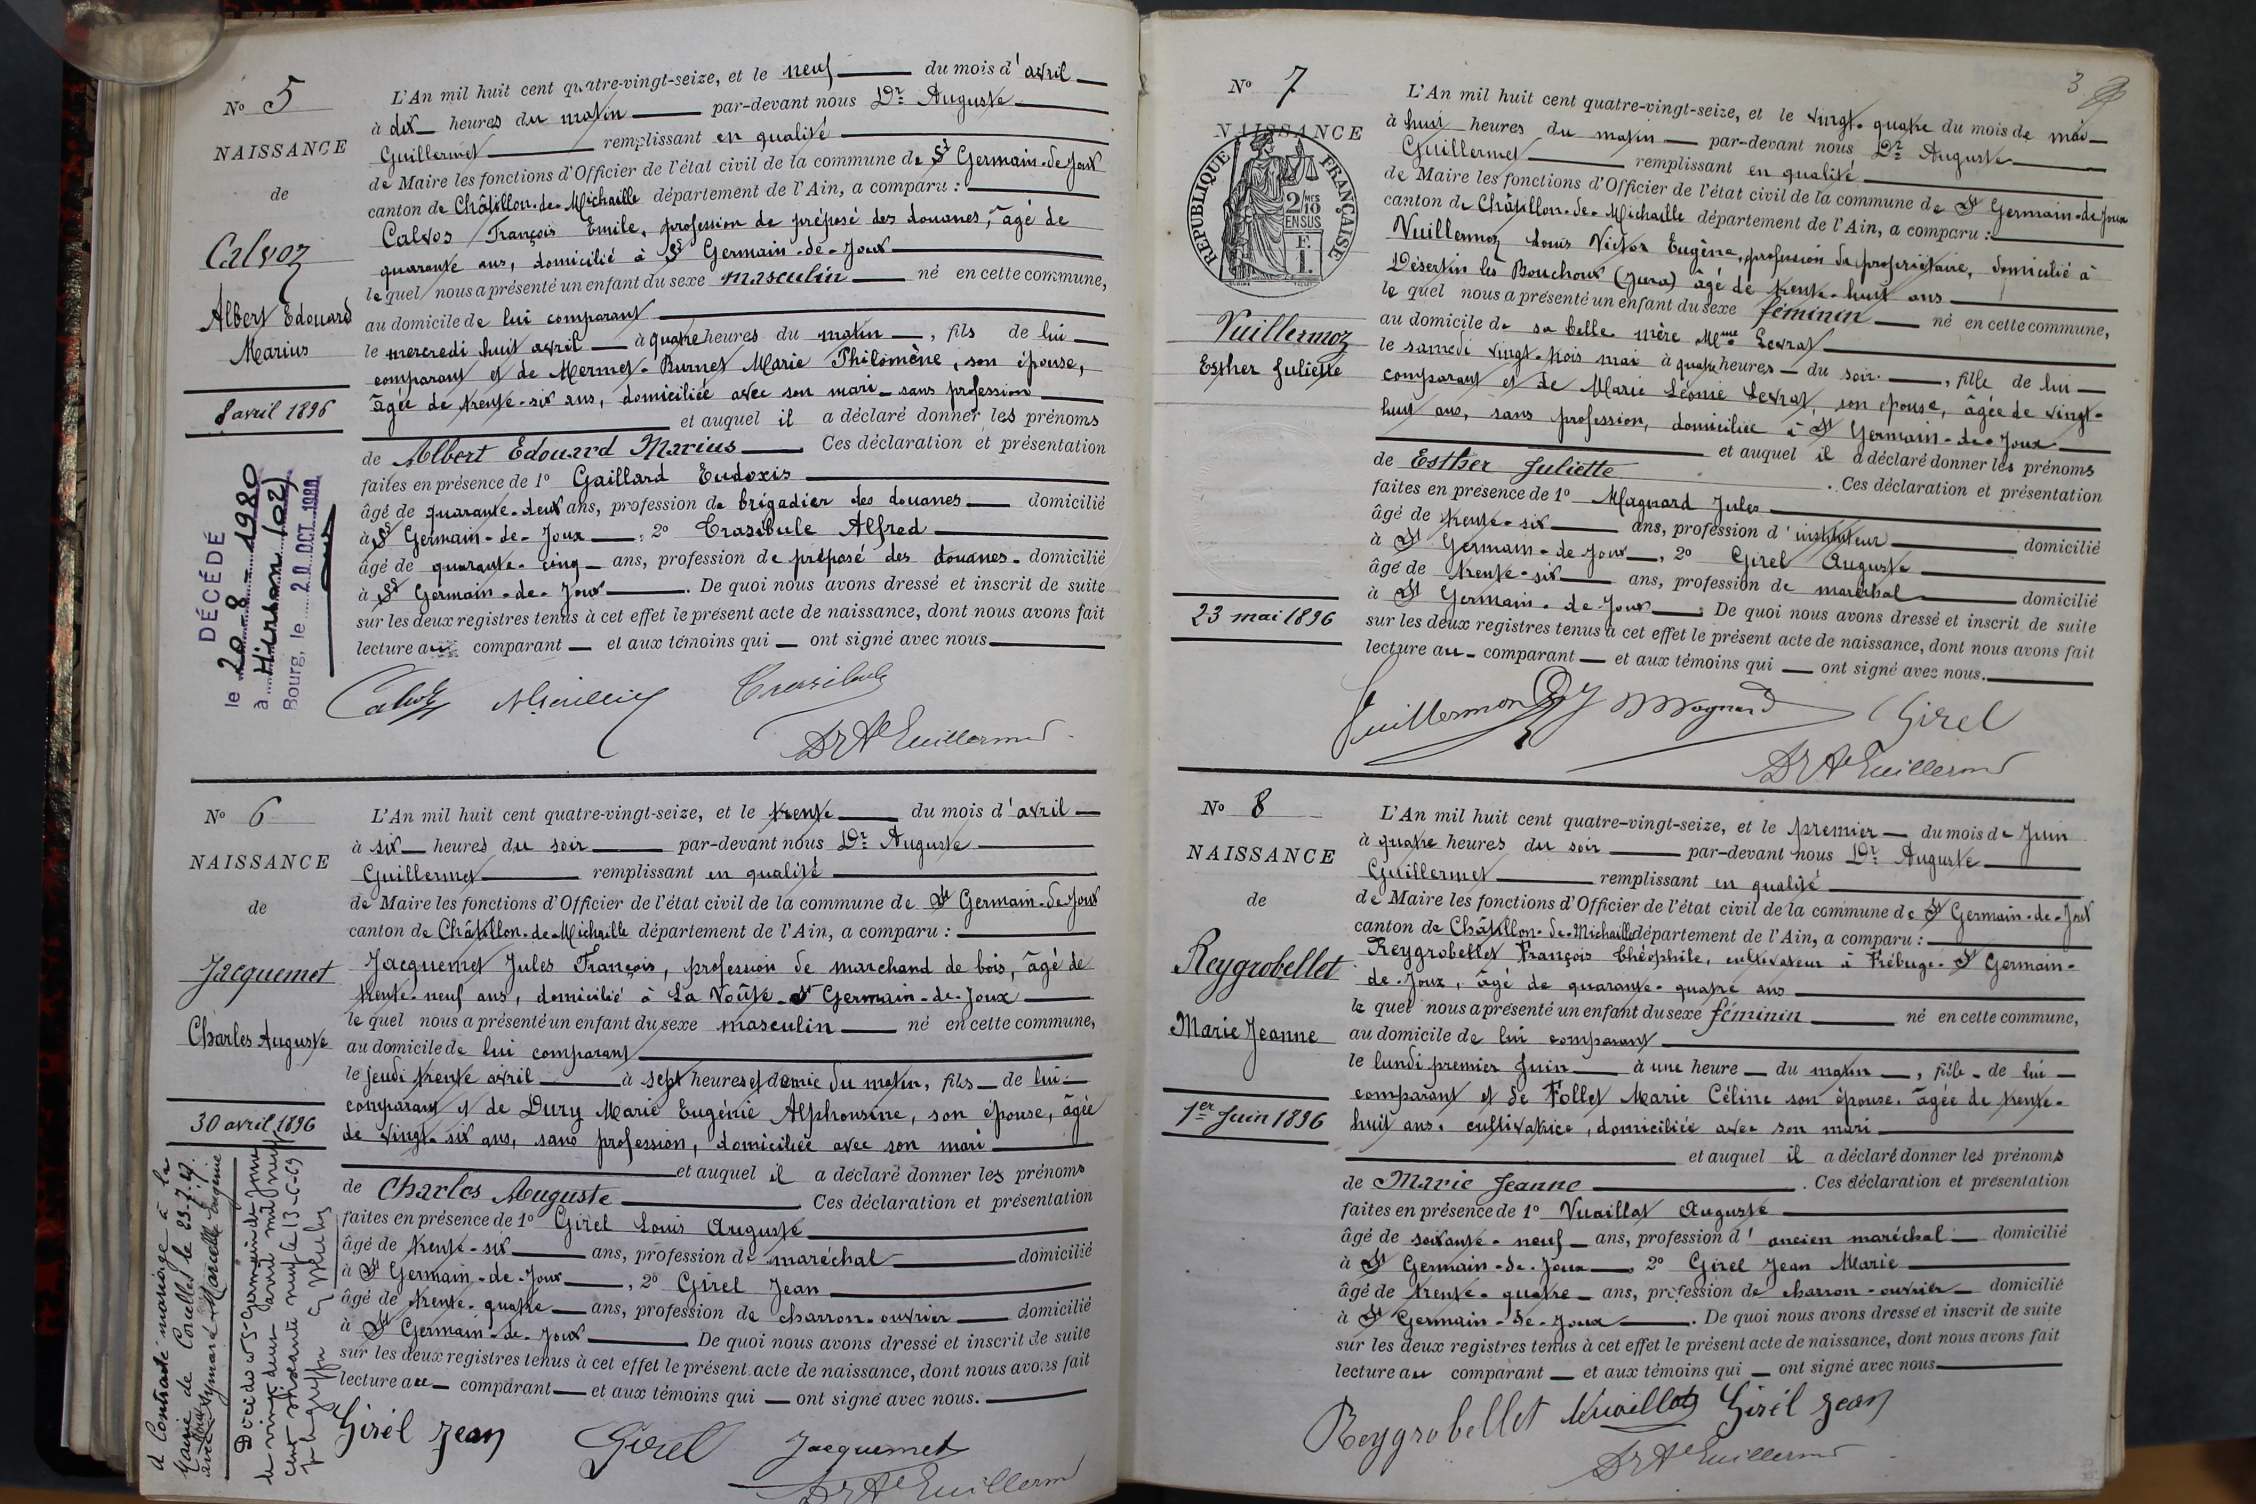 No 5
NAISSANCE
de
Calvoz
Albert Edouard
Marius
8 avril 1896
DÉCÉDÉ
le 20 8 1980
à Hirson (02)
Bourg, le 20 OCT. 1980
L'An mil huit cent quatre-vingt-seize, et le neuf du mois d'avril
à dix heures du matin par-devant nous Dr Auguste
Guillermet remplissant en qualité
de Maire les fonctions d'Officier de l'état civil de la commune de St Germain-de-Joux
canton de Châtillon-de-Michaille département de l'Ain, a comparu :
Calvoz François Emile, profession de préposé des douanes, âgé de
quarante ans, domicilié à St Germain-de-Joux
lequel nous a présenté un enfant du sexe masculin né en cette commune,
au domicile de lui comparant
le mercredi huit avril à quatre heures du matin, fils de lui
comparant et de Mermet-Burnet Marie Philomène, son épouse,
âgée de trente-six ans, domiciliée avec son mari - sans profession
et auquel il a déclaré donner les prénoms
de Albert Edouard Marius Ces déclaration et présentation
faites en présence de 1o Gaillard Eudoxis
âgé de quarante-deux ans, profession de brigadier des douanes domicilié
à St Germain-de-Joux, 2o Trasibule Alfred
âgé de quarante-cinq ans, profession de préposé des douanes - domicilié
à St Germain-de-Joux. De quoi nous avons dressé et inscrit de suite
sur les deux registres tenus à cet effet le présent acte de naissance, dont nous avons fait
lecture au comparant et aux témoins qui ont signé avec nous
Calvoz Trasibule
Dr Ate Guillermet
No 6
NAISSANCE
de
Jacquemet
Charles Auguste
30 avril 1896
a Contracté mariage à la
Mairie de Corcelles le 23-7-
avec Aymard Marcelle Eugénie
Décédé à St Germain de Joux
le vingt deux avril mil neuf
cent soixante neuf le 13-6-69
L'An mil huit cent quatre-vingt-seize, et le trente du mois d'avril
à six heures du soir par-devant nous Dr Auguste
Guillermet remplissant en qualité
de Maire les fonctions d'Officier de l'état civil de la commune de St Germain-de-Joux
canton de Châtillon-de-Michaille département de l'Ain, a comparu :
Jacquemet Jules François, profession de marchand de bois, âgé de
trente-neuf ans, domicilié à La Voûte - St Germain-de-Joux
lequel nous a présenté un enfant du sexe masculin né en cette commune,
au domicile de lui comparant
le jeudi trente avril à sept heures et demie du matin, fils de lui
comparant et de Dury Marie Eugénie Alphonsine, son épouse, âgée
de vingt-six ans, sans profession, domiciliée avec son mari
et auquel il a déclaré donner les prénoms
de Charles Auguste Ces déclaration et présentation
faites en présence de 1o Girel Louis Auguste
âgé de trente-six ans, profession de maréchal domicilié
à St Germain-de-Joux, 2o Girel Jean
âgé de trente-quatre ans, profession de charron-ouvrier domicilié
à St Germain-de-Joux De quoi nous avons dressé et inscrit de suite
sur les deux registres tenus à cet effet le présent acte de naissance, dont nous avons fait
lecture au comparant et aux témoins qui ont signé avec nous.
Girel Jean Girel Jacquemet
Dr Ate Guillermet
3
No 7
NAISSANCE
REPUBLIQUE FRANÇAISE
2/10MES
EN SUS
F.
1.
Vuillermoz
Esther Juliette
23 mai 1896
L'An mil huit cent quatre-vingt-seize, et le vingt-quatre du mois de mai
à huit heures du matin par-devant nous Dr Auguste
Guillermet remplissant en qualité
de Maire les fonctions d'Officier de l'état civil de la commune de St Germain-de-Joux
canton de Châtillon-de-Michaille département de l'Ain, a comparu :
Vuillermoz Louis Victor Eugène, profession de propriétaire, domicilié à
Désertin les Bouchoux (Jura) âgé de trente-huit ans
lequel nous a présenté un enfant du sexe féminin né en cette commune,
au domicile de sa belle mère Mme Levrat
le samedi vingt-trois mai à quatre heures du soir, fille de lui
comparant et de Marie Léonie Levrat, son épouse, âgée de vingt-
huit ans, sans profession, domiciliée à St Germain-de-Joux
et auquel il a déclaré donner les prénoms
de Esther Juliette. Ces déclaration et présentation
faites en présence de 1o Magnard Jules
âgé de trente-six ans, profession d'instituteur domicilié
à St Germain-de-Joux, 2o Girel Auguste
âgé de trente-six ans, profession de maréchal domicilié
à St Germain-de-Joux : De quoi nous avons dressé et inscrit de suite
sur les deux registres tenus à cet effet le présent acte de naissance, dont nous avons fait
lecture au comparant et aux témoins qui ont signé avec nous.
Vuillermoz J Magnard Girel
Dr Ate Guillermet
No 8
NAISSANCE
de
Reygrobellet
Marie Jeanne
1er Juin 1896
L'An mil huit cent quatre-vingt-seize, et le premier du mois de Juin
à quatre heures du soir par-devant nous Dr Auguste
Guillermet remplissant en qualité
de Maire les fonctions d'Officier de l'état civil de la commune de St Germain-de-Joux
canton de Châtillon-de-Michaille département de l'Ain, a comparu :
Reygrobellet François Théophile, cultivateur à Trébuge-St Germain-
de-Joux, âgé de quarante-quatre ans
lequel nous a présenté un enfant du sexe féminin né en cette commune,
au domicile de lui comparant
le lundi premier Juin à une heure du matin, fille de lui
comparant et de Follet Marie Céline son épouse, âgée de trente-
huit ans, cultivatrice, domiciliée avec son mari
et auquel il a déclaré donner les prénoms
de Marie Jeanne. Ces déclaration et présentation
faites en présence de 1o Vuaillat Auguste
âgé de soixante-neuf ans, profession d'ancien maréchal domicilié
à St Germain-de-Joux, 2o Girel Jean Marie
âgé de trente-quatre ans, profession de charron-ouvrier domicilié
à St Germain-de-Joux. De quoi nous avons dressé et inscrit de suite
sur les deux registres tenus à cet effet le présent acte de naissance, dont nous avons fait
lecture au comparant et aux témoins qui ont signé avec nous
Reygrobellet Vuaillat Girel Jean
Dr Ate Guillermet